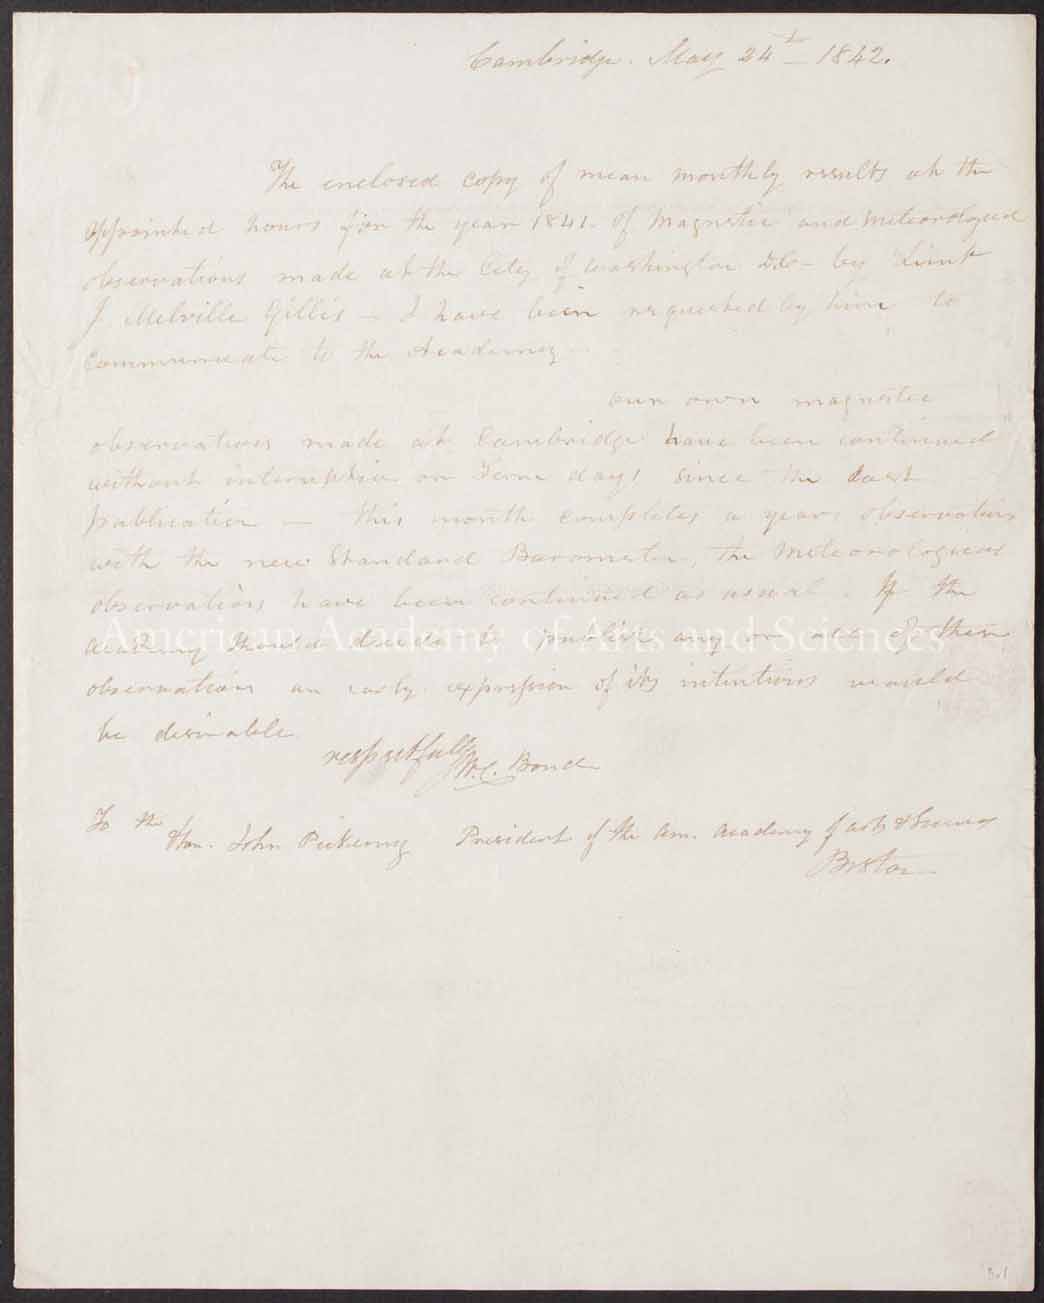 Cambridge. May 24th 1842.
The enclosed copy of mean monthly results at the
appointed hours for the year 1841. of Magnetic and Meteorological
observations made at the City of Washington D.C – by Lieut
J. Melville Gillis – I have been requested by him to
communicate to the Academy –
our own magnetic
observations made at Cambridge have been continued
without interruption on Term days since the last
publication – this month completes a years observations
with the new Standard Barometer, the Meteorological
observations have been continued as usual. If the
academy should decide to publish any or all of these
observations an early expression of its intentions would
be desirable
respectfully W.C. Bond
To the
Hon. John Pickering President of the Am. Academy of arts & Sciences
Boston
American Academy of Arts and Sciences